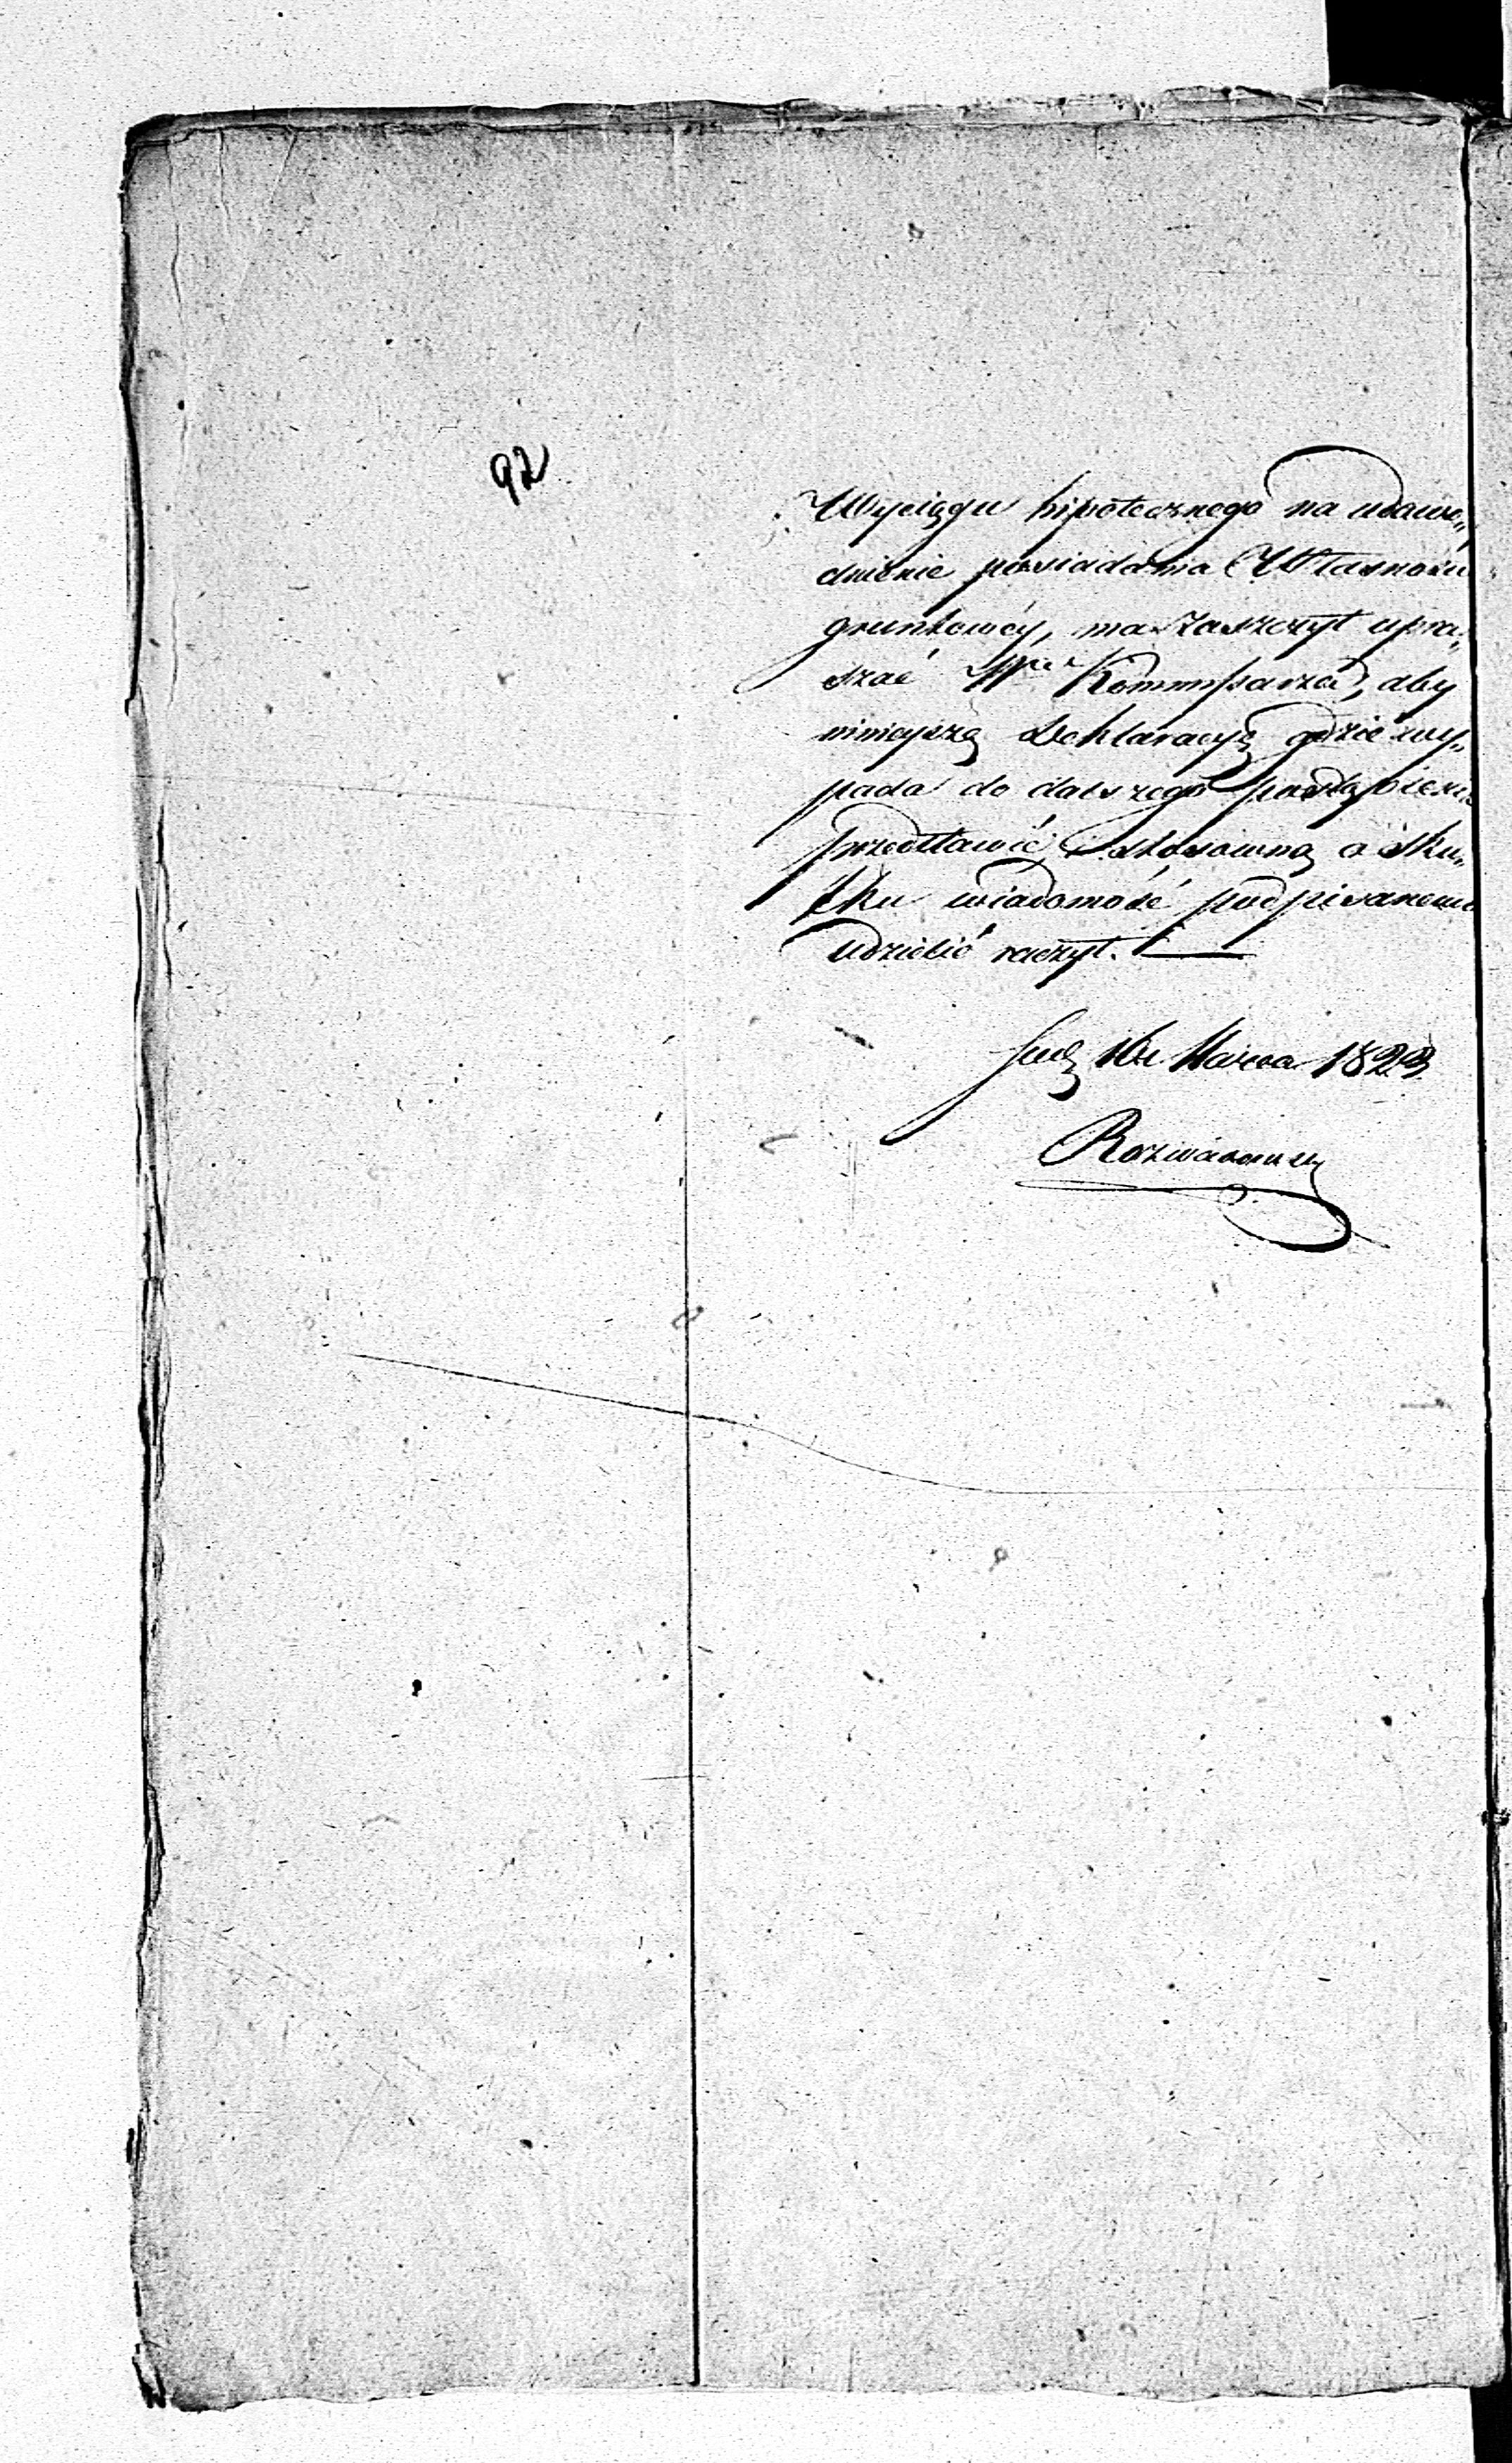 92
Wyciągu hipotecznego na udawo„
dnienie posiadania Własności
gruntowéy, ma zaszczyt upra„
szać Wgo Kommissarza, aby
ninieyszą Deklaracyę gdzie wy„
pada do dalszego postąpienia
przedstawić, i stosowną o sku„
tku wiadomość podpisanemu
udzielić raczył. —
16 Marca 1823